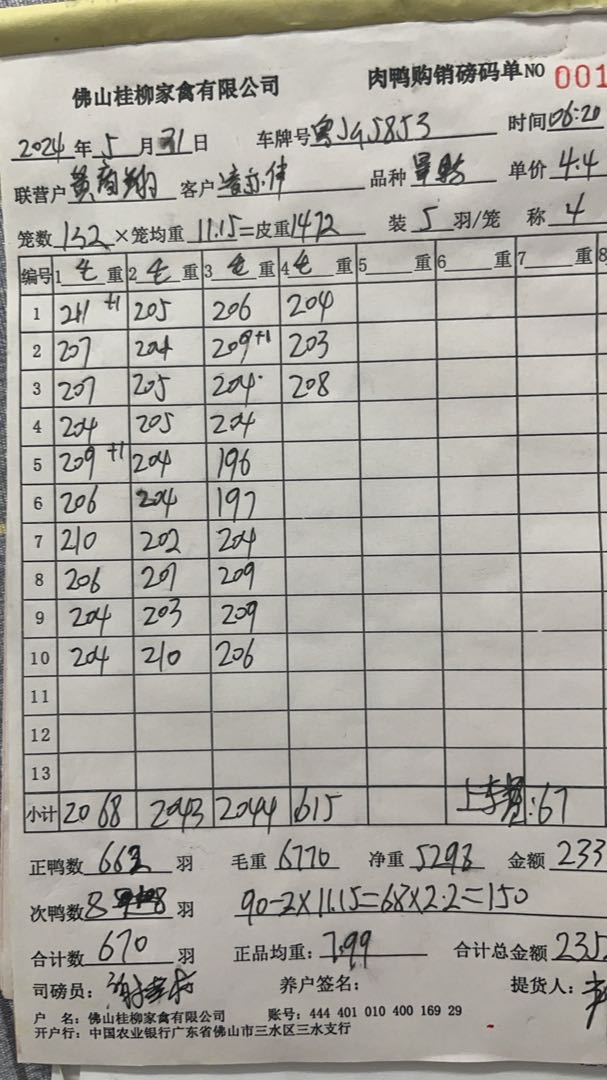 佛山桂柳家禽有限公司 肉鸭购销磅码单NO 001
2024年5月31日 车牌号粤JG5853 时间06:20
联营户 客户 品种 单价4.4
笼数132×笼均重11.15=皮重1472 装5羽/笼 称4
编号 1毛重 2毛重 3毛重 4毛重 5重 6重 7重 8
1 211+1 205 206 204
2 207 204 209+1 203
3 207 205 204 208
4 204 205 204
5 209+1 204 196
6 206 204 197
7 210 202 204
8 206 207 209
9 204 203 209
10 204 210 206
11
12
13
小计 2068 2043 2044 615 :67
正鸭数662羽 毛重6770 净重5298 金额233
次鸭数8羽 90-2×11.15=68×2.2=150
合计数670羽 正品均重:7.99 合计总金额235
司磅员: 养户签名: 提货人:
户 名:佛山桂柳家禽有限公司 账号:444 401 010 400 169 29
开户行:中国农业银行广东省佛山市三水区三水支行